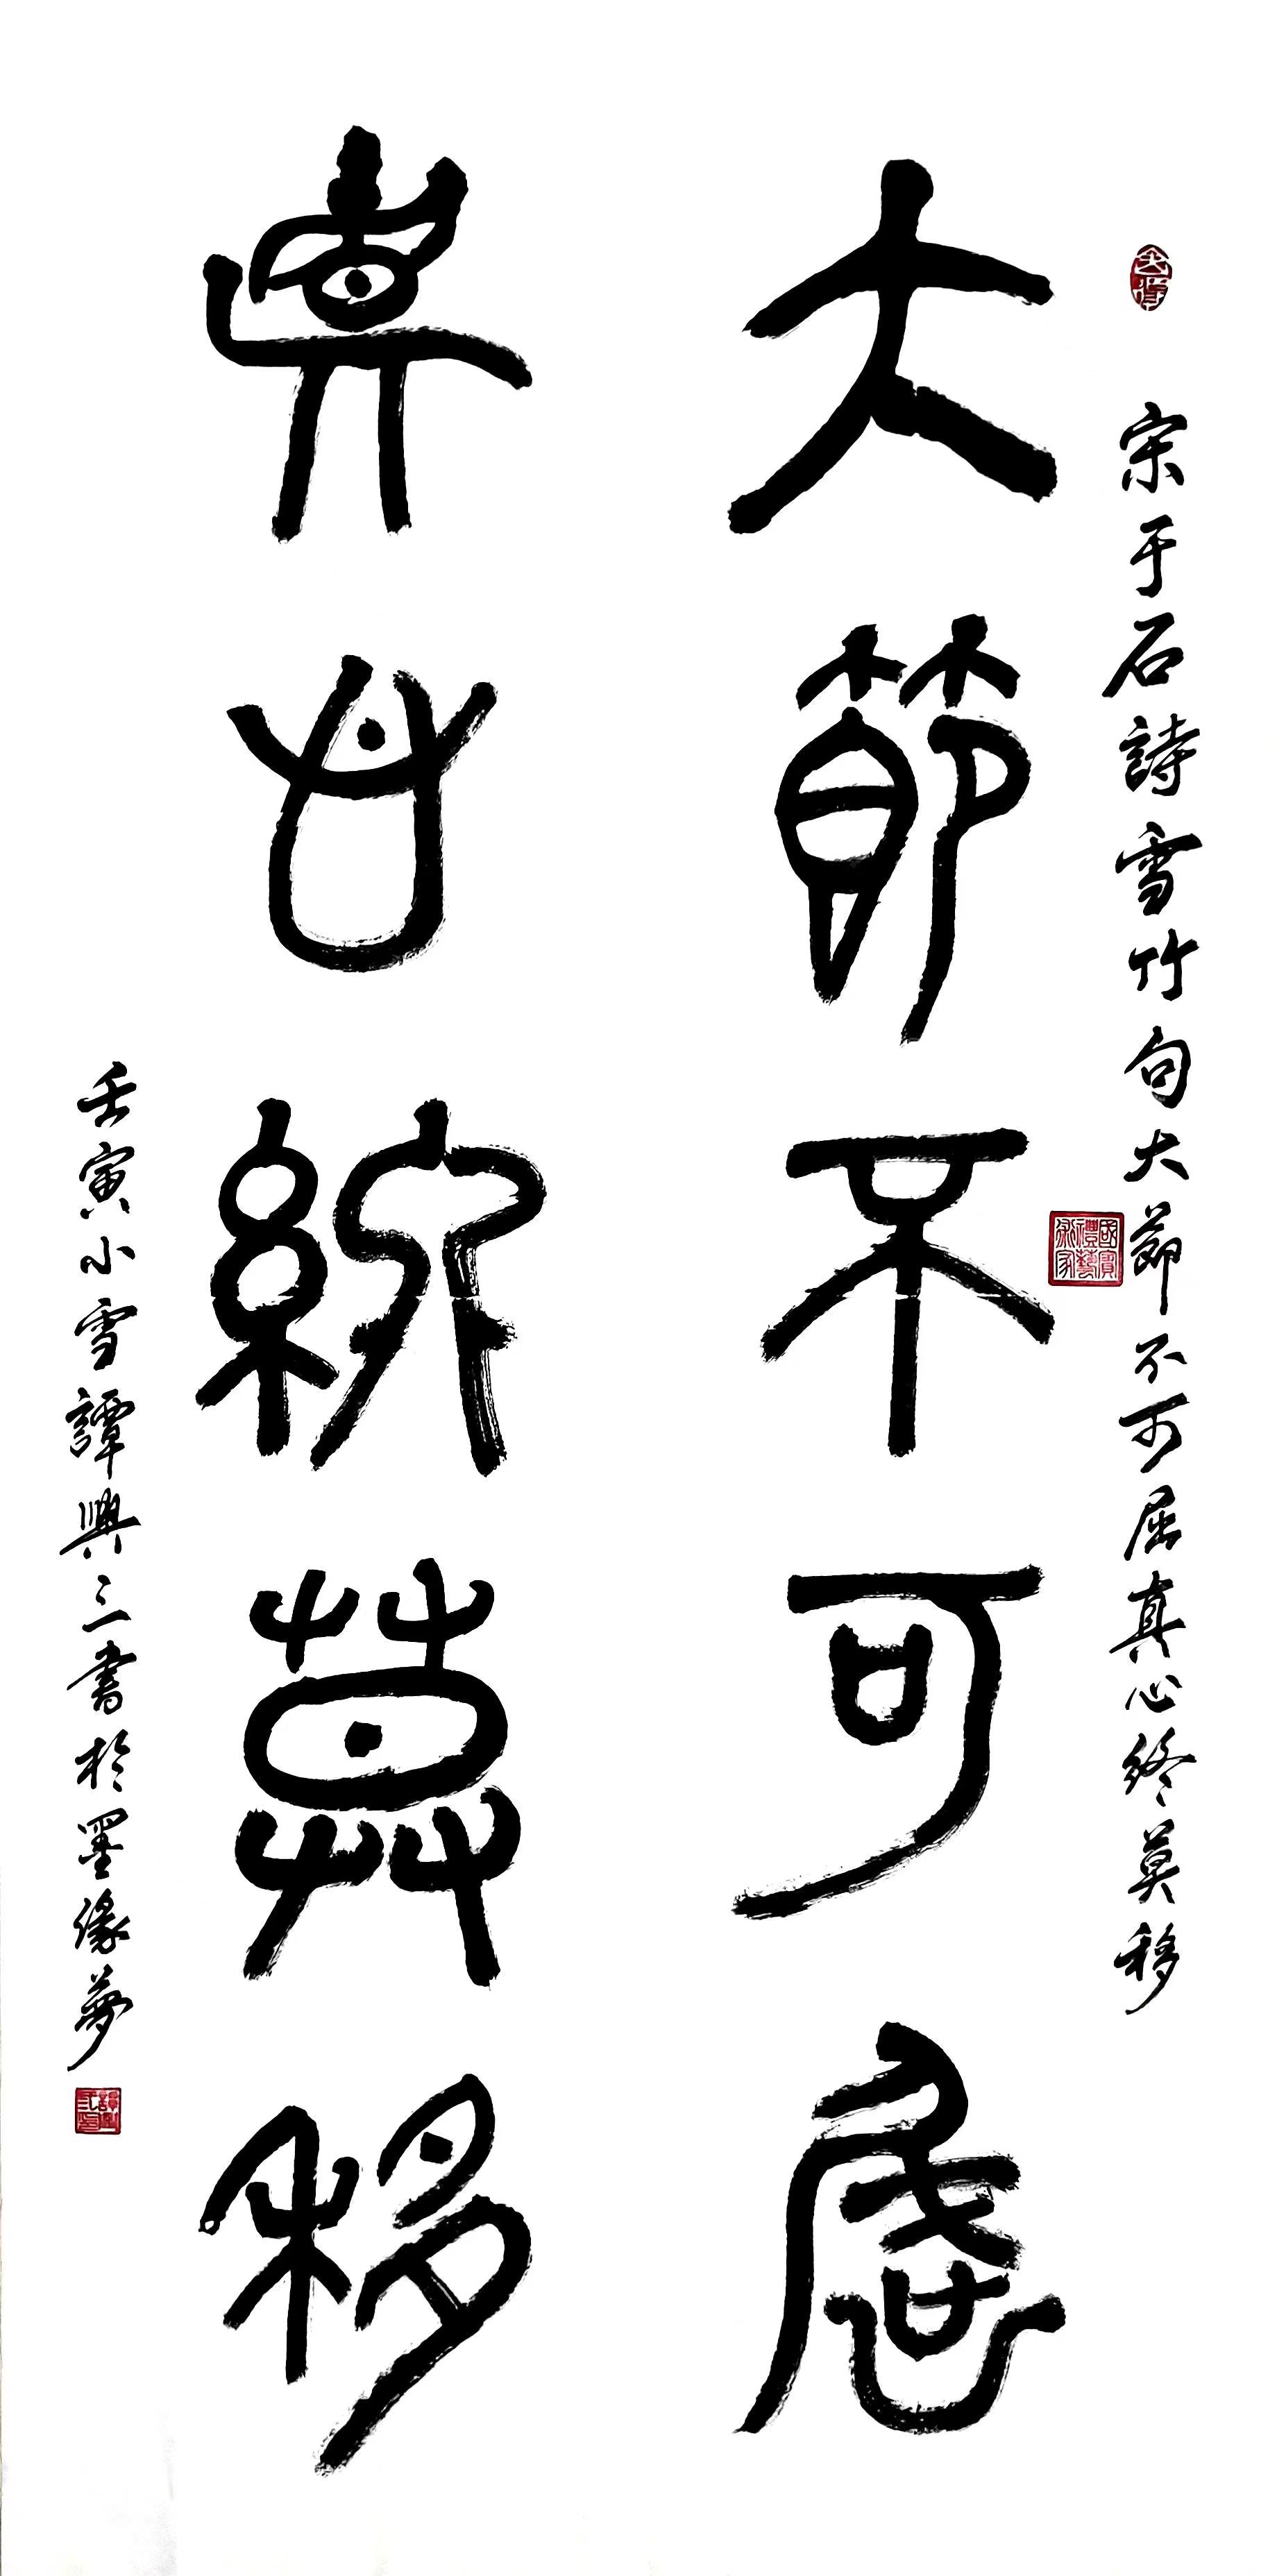 宋于石詩雪竹句大節不可屈真心終莫移
大節不可屈
真心終莫移
壬寅小雪譚興三書於墨緣夢